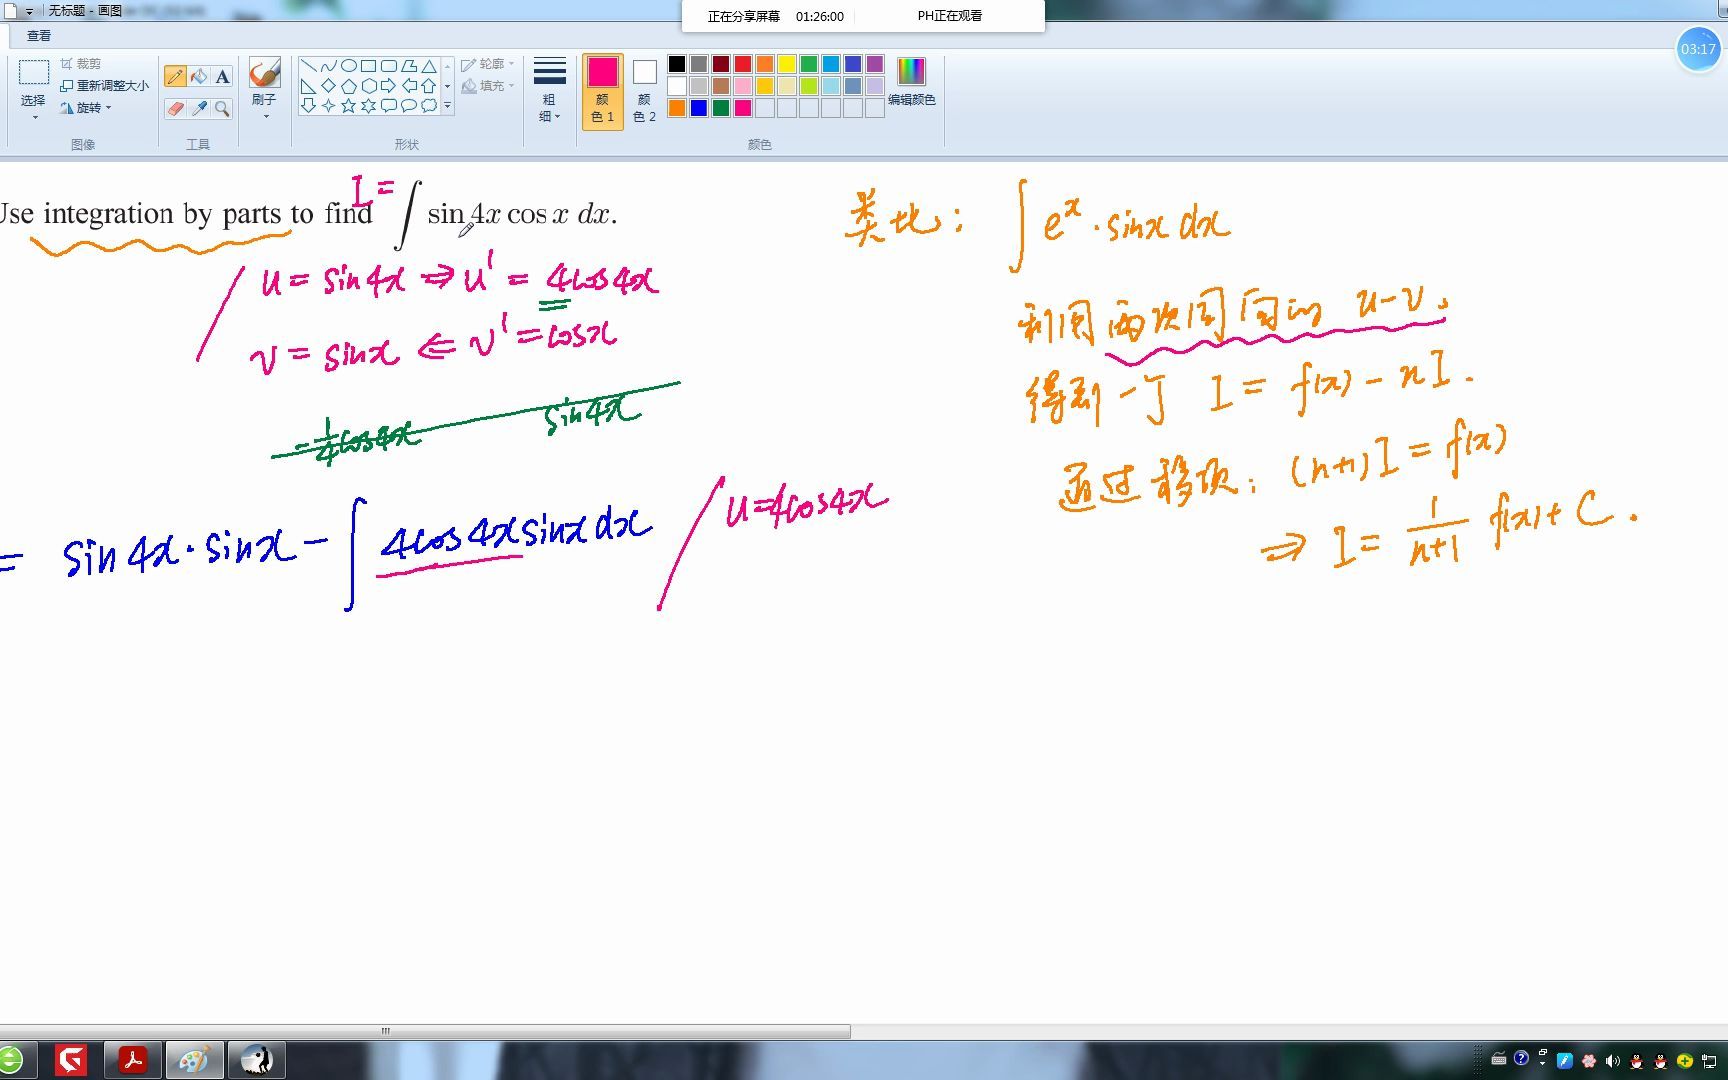 无标题 - 画图
正在分享屏幕 01:26:00 PH正在观看
查看
03:17
选择
裁剪
重新调整大小
旋转
图像
A
工具
刷子
轮廓
填充
形状
粗细
颜色 1
颜色 2
编辑颜色
颜色
I =
Use integration by parts to find ∫ sin 4x cos x dx.
u = sin4x ⇒ u' = 4cos4x
v = sinx ⇐ v' = cosx
-1/4 cos4x sin4x
= sin4x · sinx - ∫ 4cos4x sinx dx
u=4cos4x
类比: ∫ e^x · sinx dx
利用两次同向的 u-v.
得到一个 I = f(x) - nI.
通过移项: (n+1)I = f(x)
⇒ I = 1/(n+1) f(x) + C.